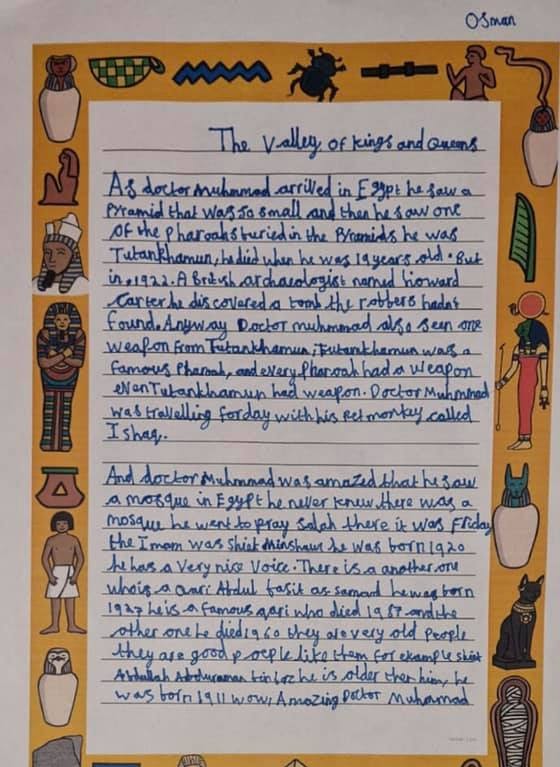 Osman
The Valley of Kings and Queens
As doctor Muhmmad arrived in Egypt he saw a
Pyramid that was so small and then he saw one
of the pharoahs buried in the Pyramids he was
Tutankhamun, he died when he was 19 years old. But
in, 1922. A British archaeologist named howard
Carter he discovered a tomb the robbers hadnt
found. Anyway Doctor muhmmad also seen one
weapon from Tutankhamun, Tutankhamun was a
famous Pharoah, and every Pharoah had a weapon
even Tutankhamun had weapon. Doctor Muhmmad
was travelling for day with his Pet monkey called
Ishaq.
And doctor Muhmmad was amazed that he saw
a mosque in Egypt he never knew there was a
mosque he went to pray salah there it was Friday
the Imam was Minshawi he was born 1920
he has a very nice voice. There is a another one
who is a qari Abdul basit as samad he was born
1927 he is a famous qari who died 1987 and the
other one he died 1960 they are very old People
they are good poeple like them for example
Abdullah he is older then him, he
was born 1911 wow, Amazing Doctor Muhammad